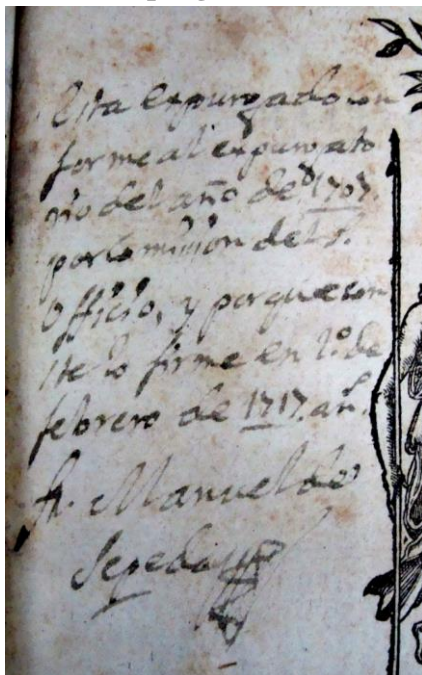 Esta expurgado con
forme al expurgato
rio del año de 1707.
por comission del S.
Officio, y porque con
ste lo firme en 1º. de
febrero de 1717. añ.
fr. Manuel de
Sepeda